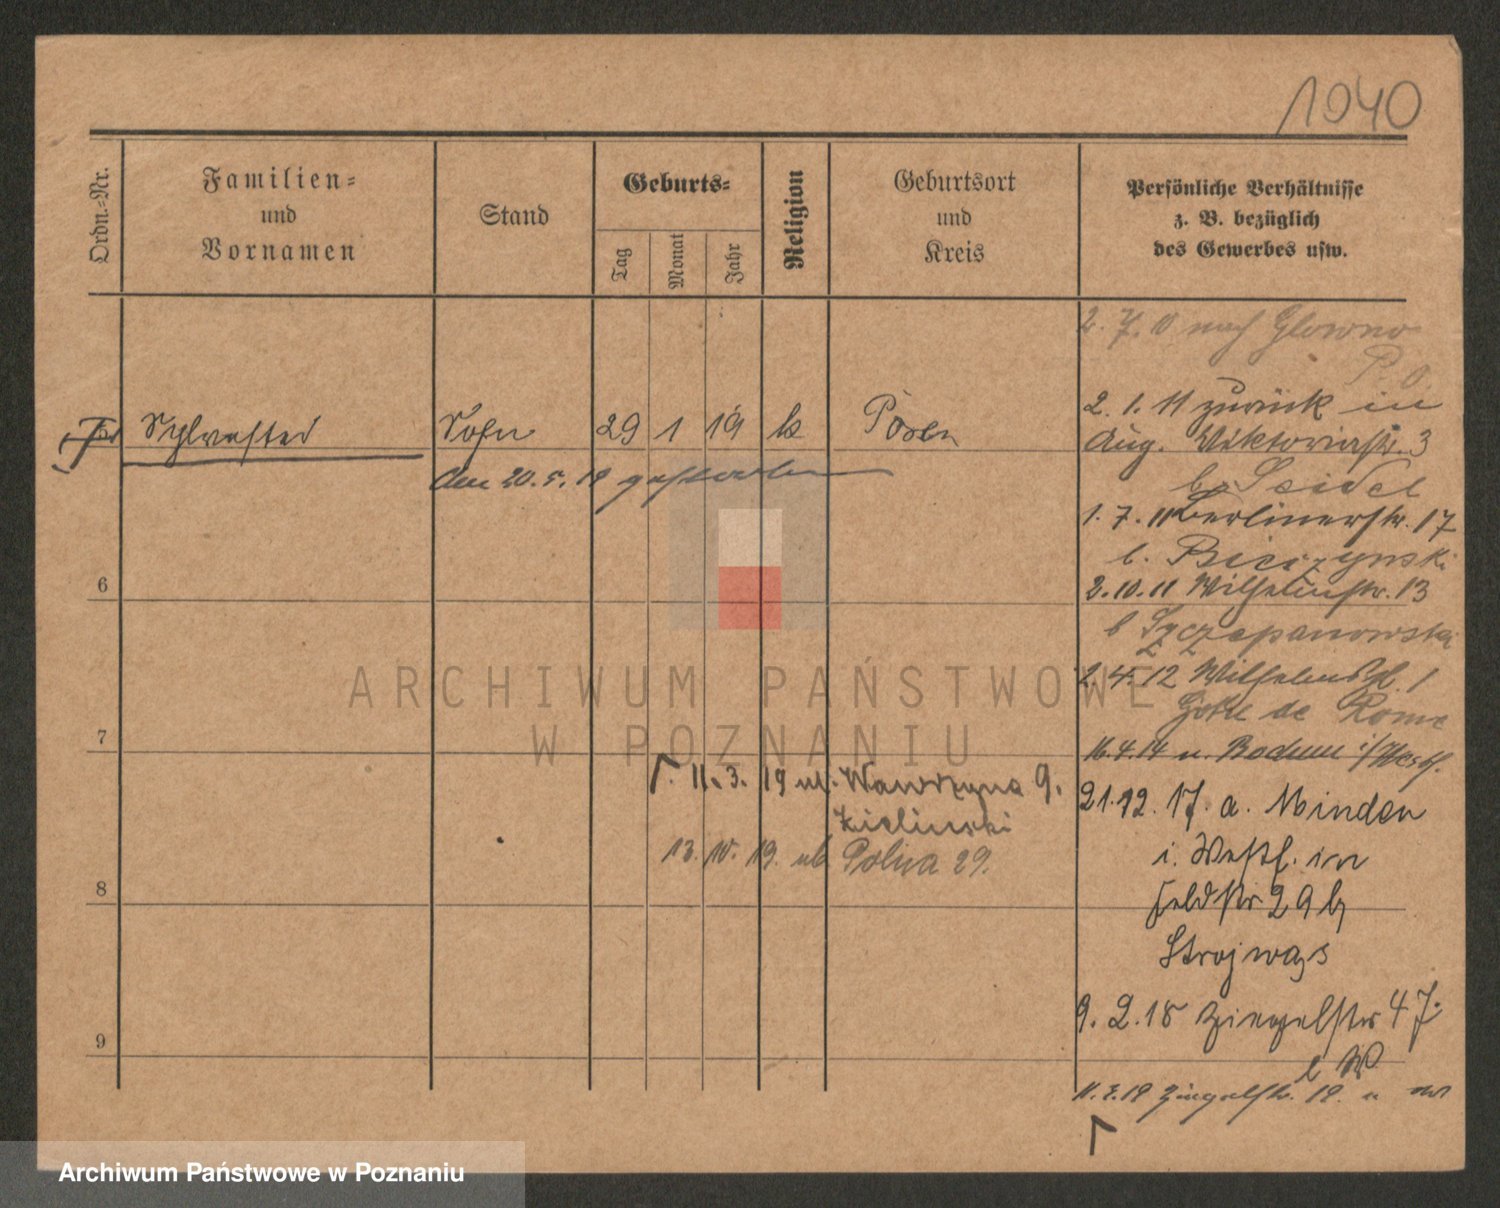 1940
Ordn.=Nr.
Familien=
und
Vornamen
Stand
Geburts=
Tag
Monat
Jahr
Religion
Geburtsort
und
Kreis
Persönliche Verhältnisse
z. B. bezüglich
des Gewerbes usw.
2. 7. 10 nach Glowno
P. O.
2. 1. 11 zurück in
Aug. Viktoriastr. 3
b. Seidel
1. 7. 11 Berlinerstr. 17
b.
2. 10. 11 Wilhelmstr. 13
b Szczepanowski
2. 4. 12 Wilhelmspl. 1
Hotel de Rome
16. 4. 14 n. i/Westf.
21. 12. 17. a. Minden
i. Westf. in
Feldstr 29 b
Strojwąs
9. 2. 18 Ziegelstr 47.
b W
11. 7. 18
Sylvester Sohn 29 1 19 k Posen
den 20. 5. 19 gestorben
6
7
8
9
11. 3. 19 ul. Wawrzyna 9.
Zielinski
13. 10. 19. ul Polna 29.
ARCHIWUM PAŃSTWOWE
W POZNANIU
Archiwum Państwowe w Poznaniu